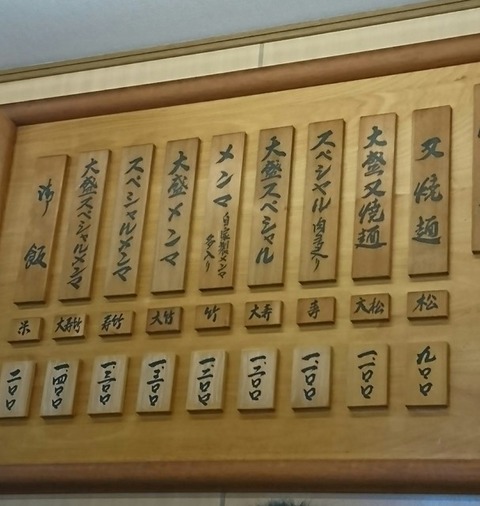 叉焼麺
松
九〇〇
大盛叉焼麺
大松
一、〇〇〇
スペシャル肉多入り
寿
一、一〇〇
大盛スペシャル
大寿
一、二〇〇
メンマ自家製メンマ多入り
竹
一、二〇〇
大盛メンマ
大竹
一、三〇〇
スペシャルメンマ
寿竹
一、三〇〇
大盛スペシャルメンマ
大寿竹
一、四〇〇
御飯
米
二〇〇